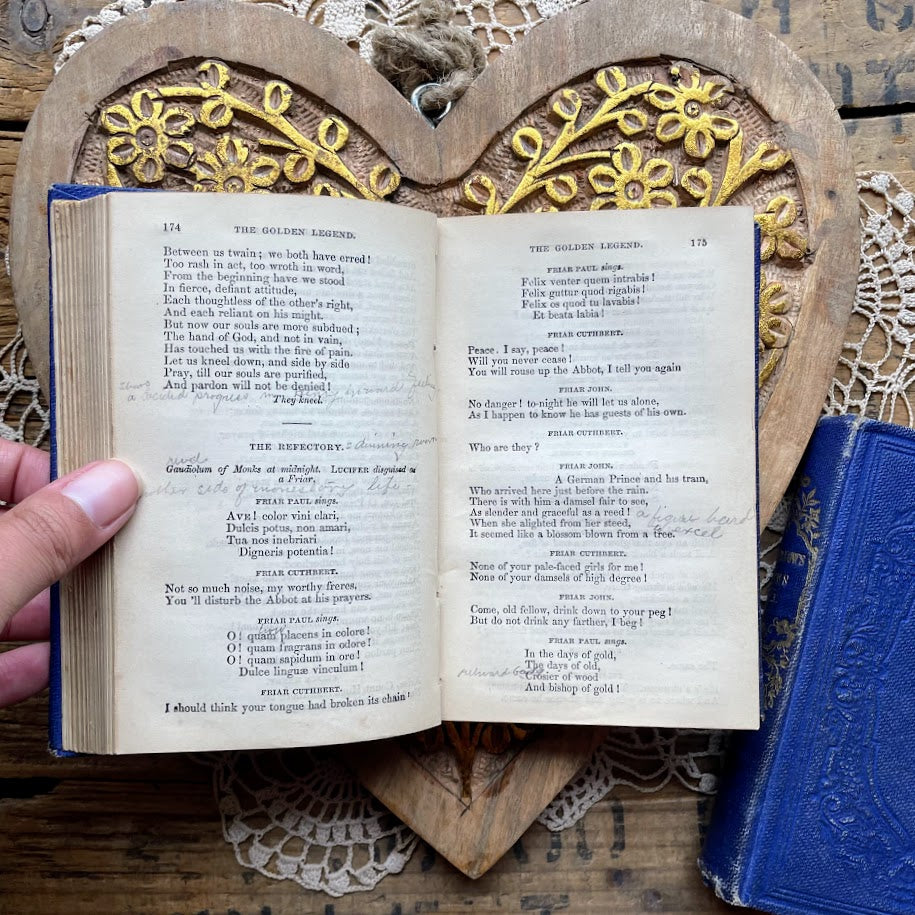 174
THE GOLDEN LEGEND.
Between us twain; we both have erred!
Too rash in act, too wroth in word,
From the beginning have we stood
In fierce, defiant attitude,
Each thoughtless of the other's right,
And each reliant on his might.
But now our souls are more subdued;
The hand of God, and not in vain,
Has touched us with the fire of pain.
Let us kneel down, and side by side
Pray, till our souls are purified,
And pardon will not be denied!
shows
a decided progress
They kneel.
THE REFECTORY. a dining room
Gaudiolum of Monks at midnight. LUCIFER disguised as
a Friar.
other side of monastery life
FRIAR PAUL sings.
AVE! color vini clari,
Dulcis potus, non amari,
Tua nos inebriari
Digneris potentia!
FRIAR CUTHBERT.
Not so much noise, my worthy freres,
You 'll disturb the Abbot at his prayers.
FRIAR PAUL sings.
O! quam placens in colore!
O! quam fragrans in odore!
O! quam sapidum in ore!
Dulce linguæ vinculum!
FRIAR CUTHBERT.
I should think your tongue had broken its chain!
THE GOLDEN LEGEND.
175
FRIAR PAUL sings.
Felix venter quem intrabis!
Felix guttur quod rigabis!
Felix os quod tu lavabis!
Et beata labia!
FRIAR CUTHBERT.
Peace. I say, peace!
Will you never cease!
You will rouse up the Abbot, I tell you again
FRIAR JOHN.
No danger! to-night he will let us alone,
As I happen to know he has guests of his own.
FRIAR CUTHBERT.
Who are they?
FRIAR JOHN.
A German Prince and his train,
Who arrived here just before the rain.
There is with him a damsel fair to see,
As slender and graceful as a reed! a figure hard
When she alighted from her steed, to excel
It seemed like a blossom blown from a tree.
FRIAR CUTHBERT.
None of your pale-faced girls for me!
None of your damsels of high degree!
FRIAR JOHN.
Come, old fellow, drink down to your peg!
But do not drink any farther, I beg!
FRIAR PAUL sings.
In the days of gold,
The days of old,
Crosier of wood
And bishop of gold!